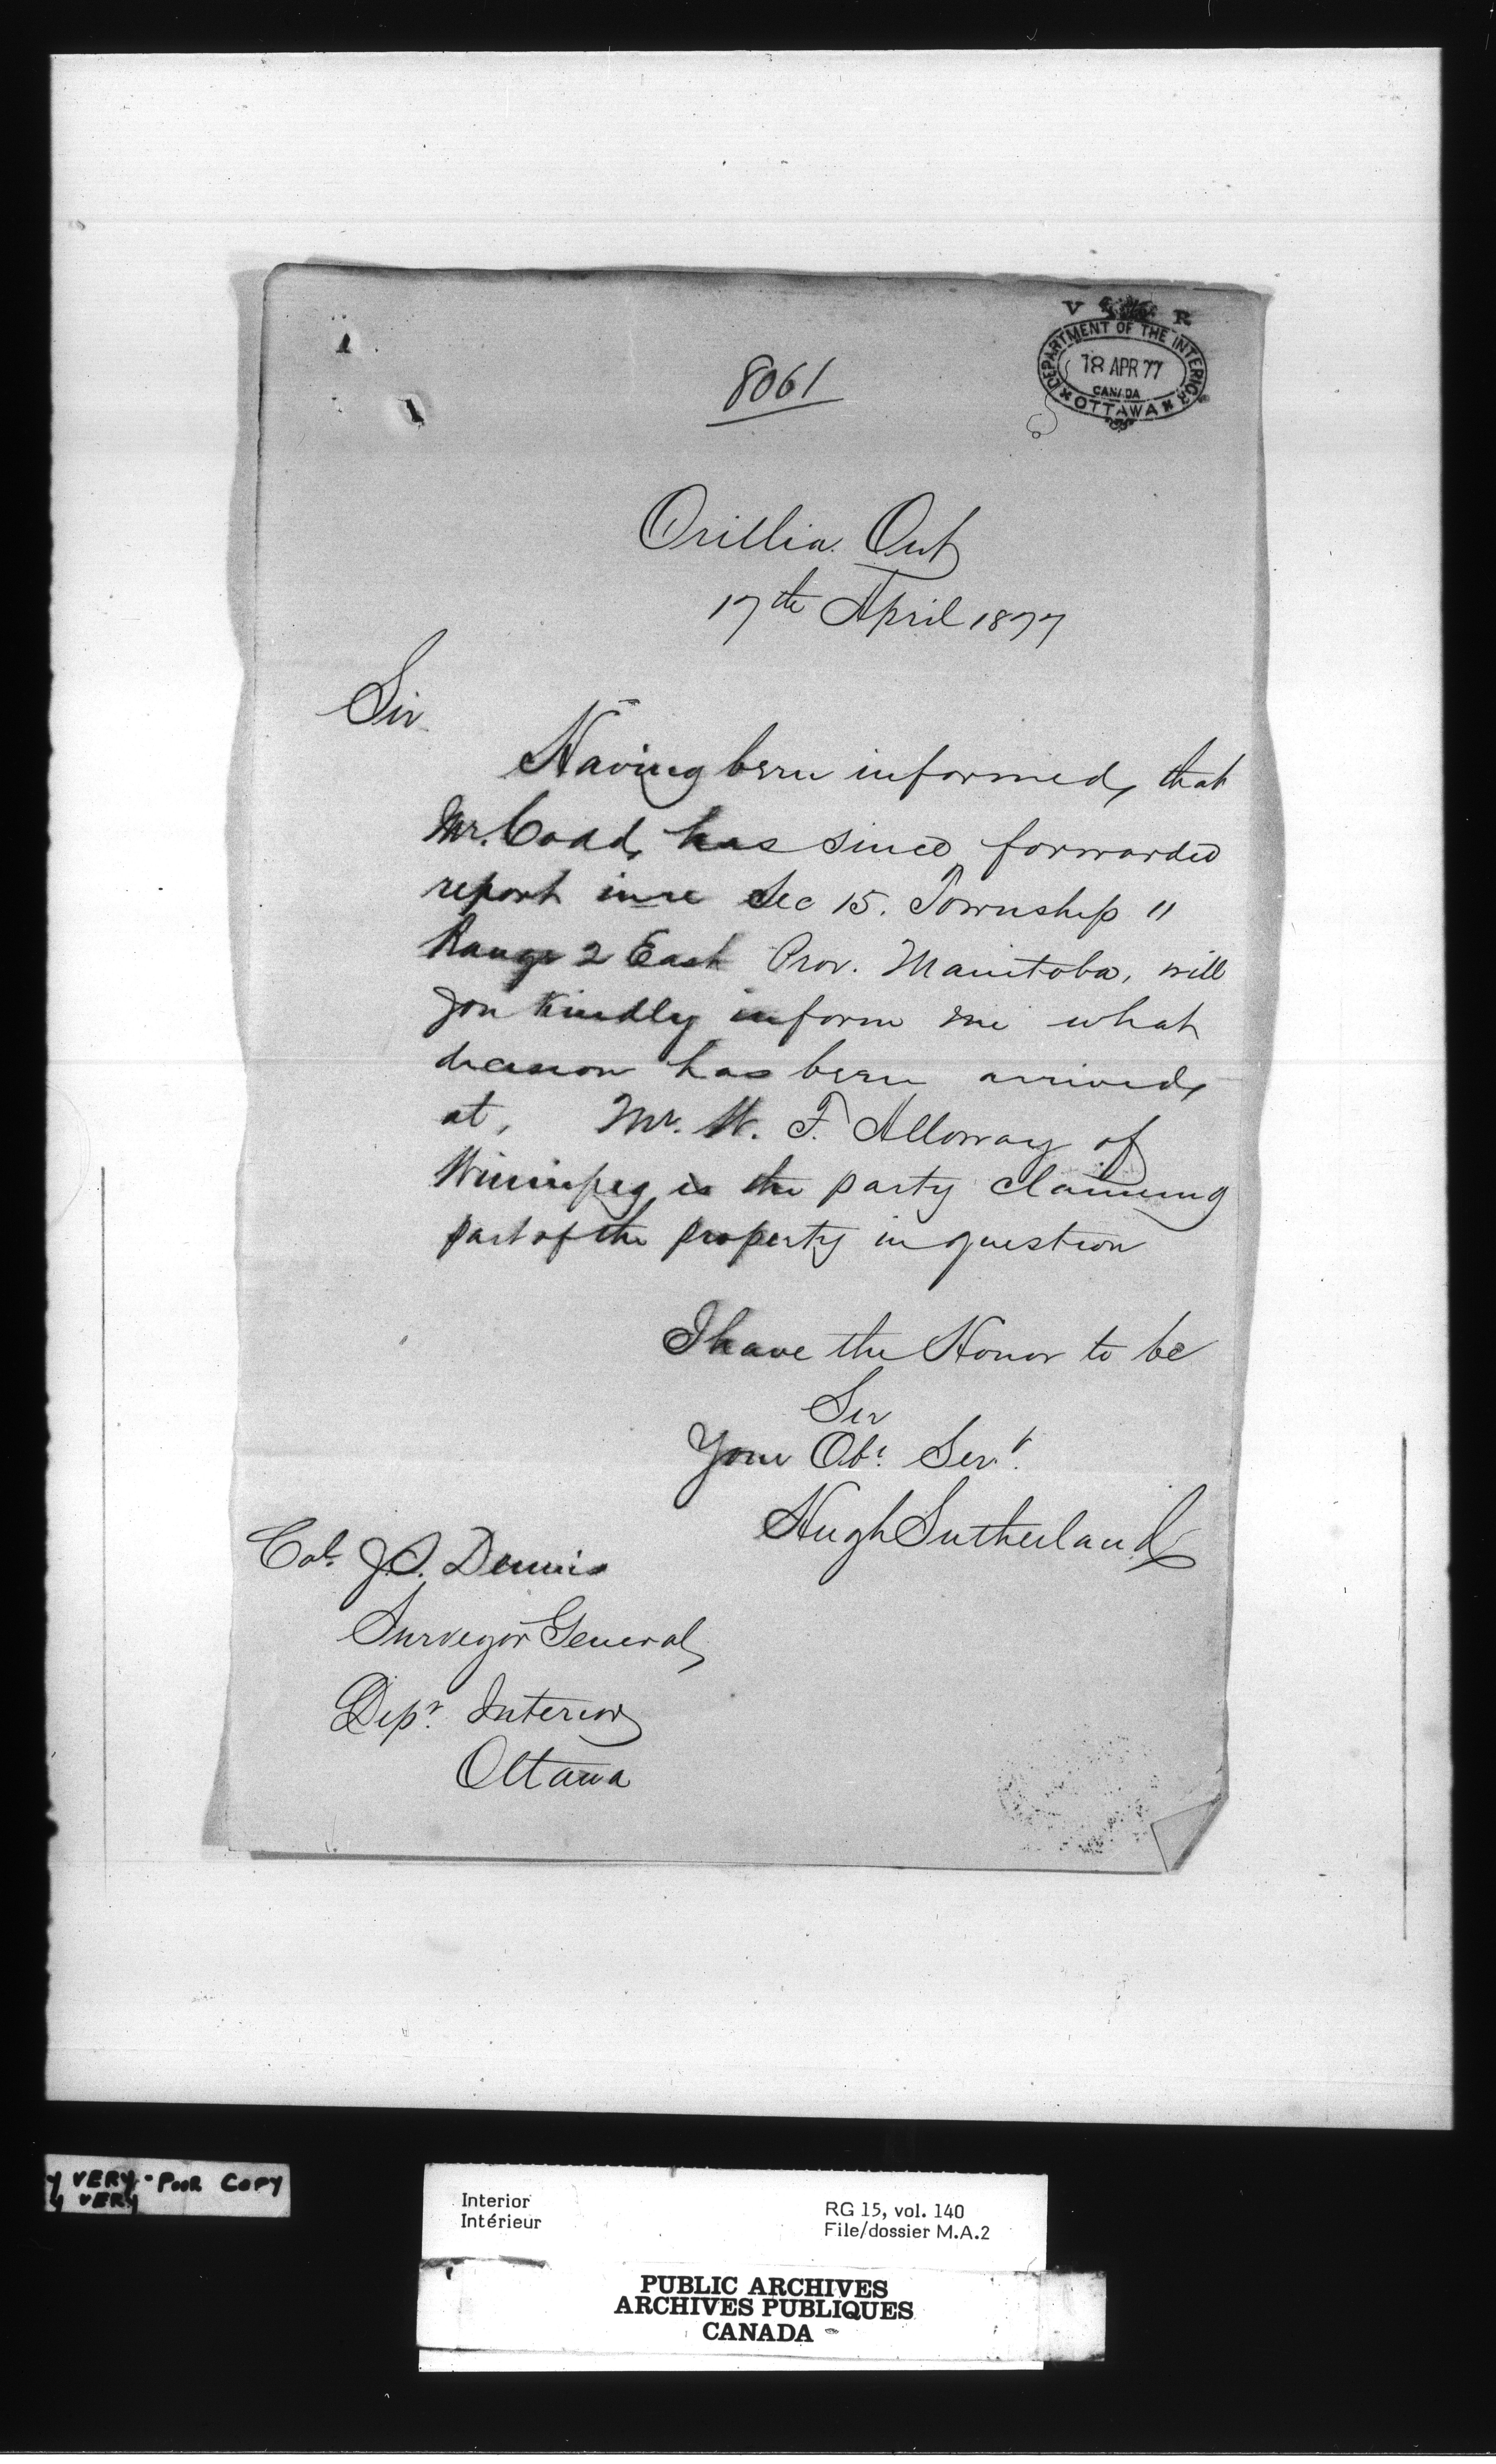 8061
V R
DEPARTMENT OF THE INTERIOR
18 APR 77
CANADA
OTTAWA
Orillia Ont
17th April 1877
Sir
Having been informed, that
Mr. Coad, has since forwarded
report in re Sec 15. Township 11
Range 2 East Prov. Manitoba, will
you kindly inform me what
decision has been arrived,
at, Mr. W. F. Alloway of
Winnipeg is the party claiming
part of the property in question
I have the Honor to be
Sir
Your Obt. Servt.
Hugh Sutherland
Col. J.S. Dennis
Surveyor General,
Dept. Interior
Ottawa
y VERY - POOR COPY
y VERY
Interior
Intérieur
RG 15, vol. 140
File/dossier M.A.2
PUBLIC ARCHIVES
ARCHIVES PUBLIQUES
CANADA